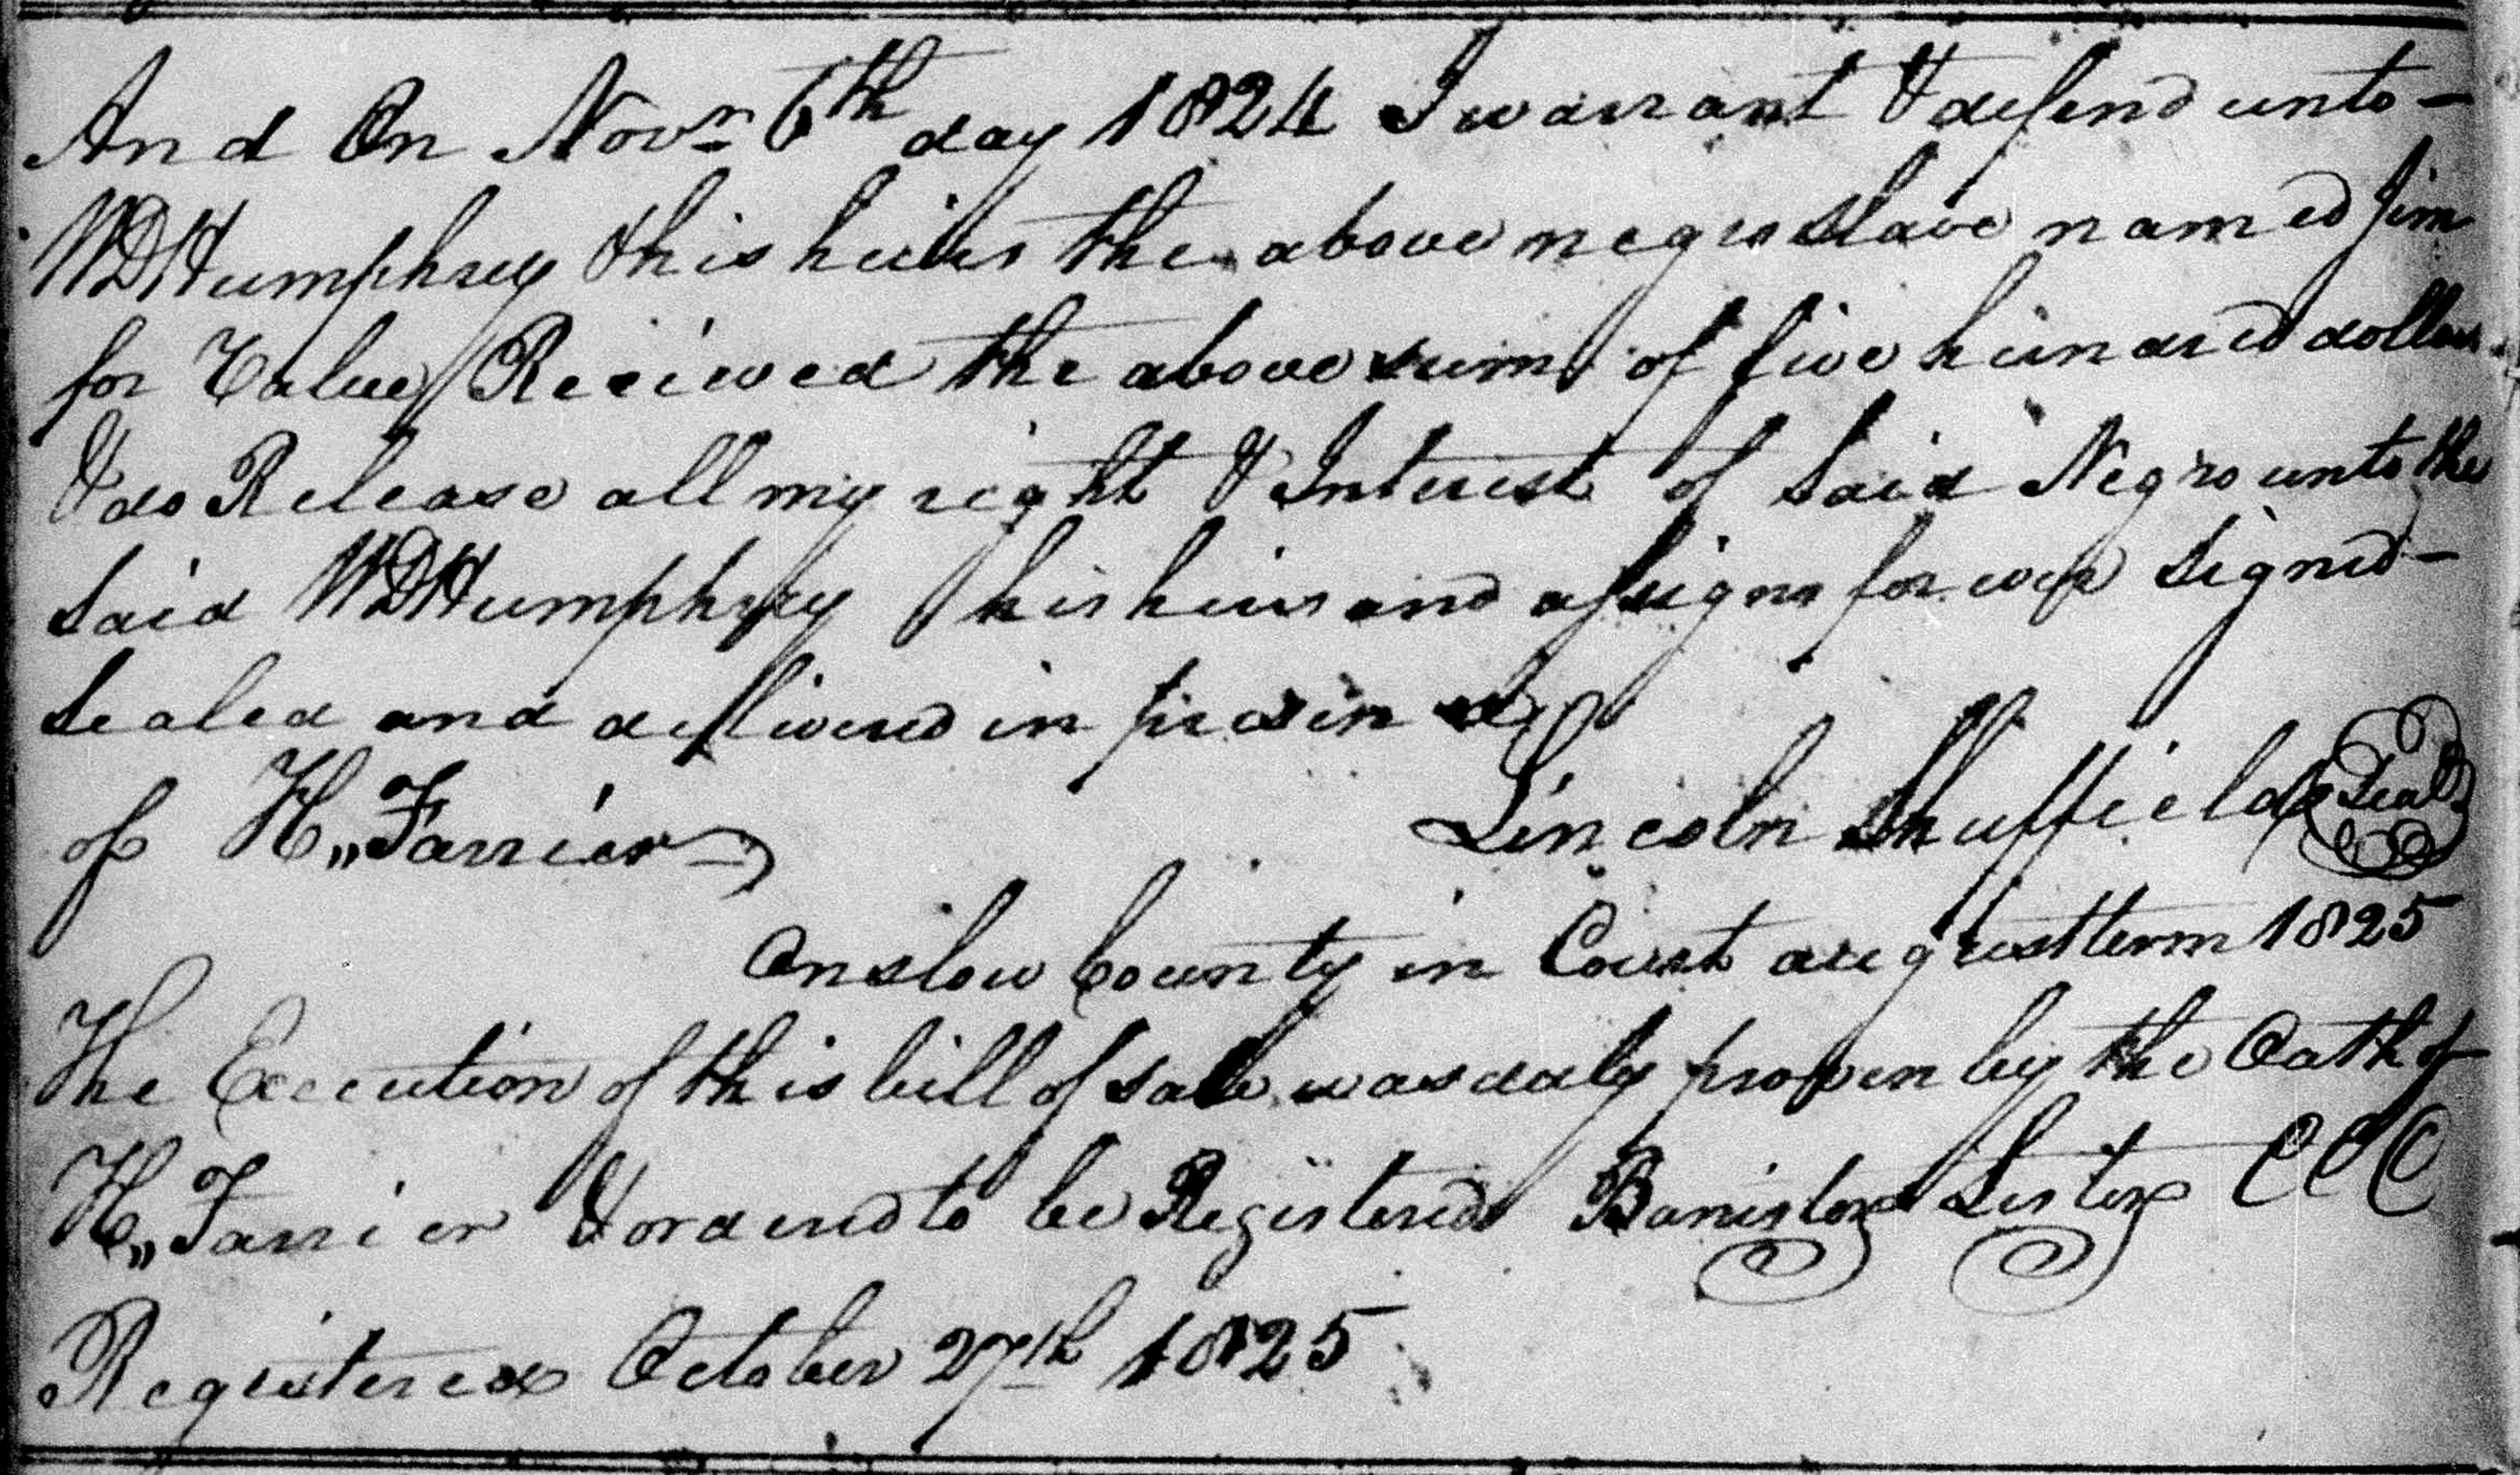 And On Novr 6th day 1824 I warrant & defend unto –
WDHumphrey & his heirs the above negro slave named Jim
for Value Received the above sum of five hundred dollars
& do Release all my right & Interest of Said Negro unto the
Said WDHumphrey & his heirs and assigns for ever Signed –
Sealed and dellivered in
of H,, Farrier Lincoln Shuffield Seal
Onslow County in Court august term 1825
The Execution of this bill of sale was duly proven by the Oath of
H,, Farrier & ordered to be Registered Banister Lester CCC
Registered October 27th 1825